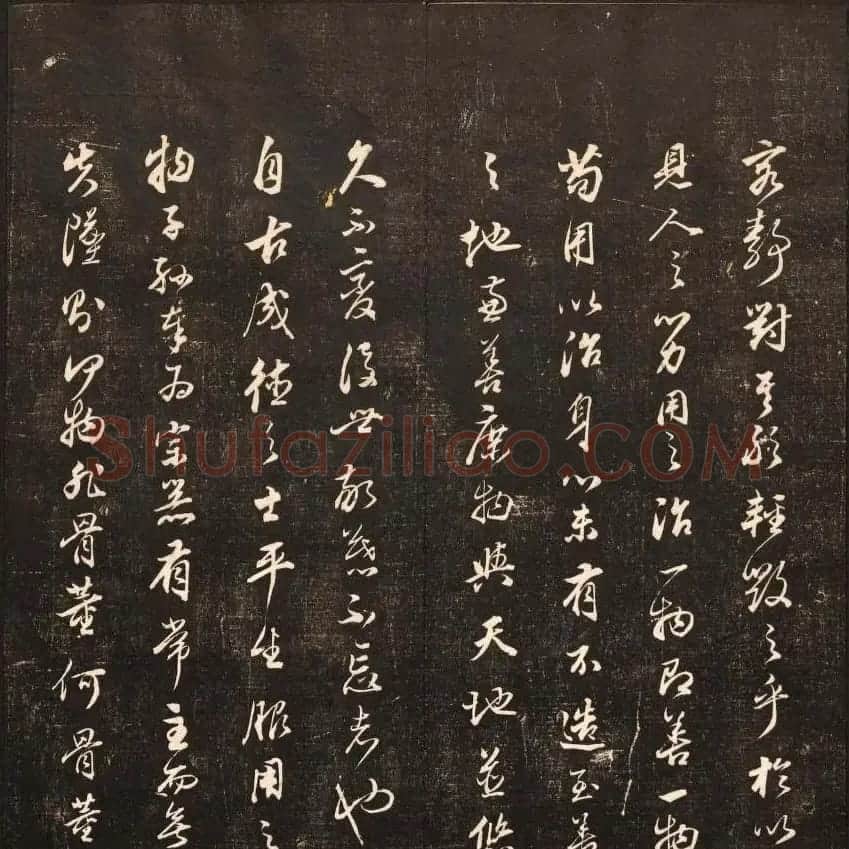 容靜對其能輕毀之乎於以
見人之心力用之治一物即善一物
苟用以治身心未有不造至善
之地善庶物與天地並悠
久不變後世敬慕不忘者也
自古成德之士平生服用之
物子孫奉為宗器有常主而無
失墜則何物非骨董何骨董
Shufaziliao.COM